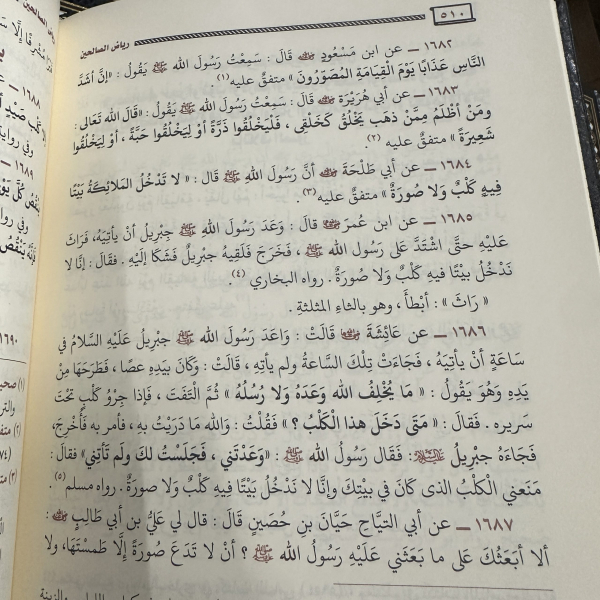 ٥١٠
رياض الصالحين
١٦٨٢ ــ عن ابن مَسْعُودٍ رضي الله عنه قَالَ : سَمِعْتُ رَسُولَ الله ﷺ يَقُولُ : «إنَّ أشَدَّ
النَّاسِ عَذَابًا يَوْمَ الْقِيَامَةِ المُصَوِّرُونَ» متفقٌ عليه (١) .
١٦٨٣ ــ عن أبي هُرَيْرَةَ رضي الله عنه قَالَ : سَمِعْتُ رَسُولَ الله ﷺ يَقُولُ : «قَالَ الله تَعَالى :
وَمَنْ أَظْلَمُ مِمَّنْ ذَهَبَ يَخْلُقُ كَخَلْقِي ، فَلْيَخْلُقُوا ذَرَّةً أَوْ لِيَخْلُقُوا حَبَّةً ، أَوْ لِيَخْلُقُوا
شَعِيرَةً » متفقٌ عليه (٢) .
١٦٨٤ ــ عن أبي طَلْحَةَ رضي الله عنه أَنَّ رَسُولَ اللهِ ﷺ قَال : « لا تَدْخُلُ المَلائِكَةُ بَيْتًا
فِيهِ كَلْبٌ وَلا صُورَةٌ » متفقٌ عليه (٣) .
١٦٨٥ ــ عن ابن عُمَرَ رضي الله عنه قَالَ : وَعَدَ رَسُولَ اللهِ ﷺ جِبْرِيلُ أنْ يأتِيَهُ، فَرَاثَ
عَلَيْهِ حتَّى اشْتَدَّ عَلى رسول الله ﷺ ، فَخَرَجَ فَلَقِيَهُ جِبْرِيلُ فَشَكَا إلَيْهِ . فقَالَ : إنَّا لا
نَدْخُلُ بَيْتًا فيهِ كَلْبٌ وَلا صُورَةٌ . رواه البخاري (٤) .
« رَاثَ » : أبْطَأَ ، وهو بالثاءِ المثلثةِ .
١٦٨٦ ــ عن عَائِشَةَ رضي الله عنها قَالَتْ : وَاعَدَ رَسُولَ الله ﷺ جبْرِيلُ عَلَيْهِ السَّلامُ في
سَاعَةٍ أنْ يأتِيَهُ ، فَجَاءَتْ تِلْكَ السَّاعةُ ولم يأتِهِ ، قَالَتْ : وَكَانَ بِيَدِهِ عصًا ، فَطَرَحَهَا مِنْ
يَدِهِ وَهُوَ يَقُولُ : « مَا يُخْلِفُ الله وَعْدَهُ وَلا رُسُلُهُ » ثُمَّ التَفَتَ ، فَإذا جِرْوُ كَلْبٍ تَحْتَ
سَرِيره . فقَالَ : «مَتَى دَخَلَ هذا الْكَلْبُ ؟ » فقُلْتُ : وَالله مَا دَرَيْتُ بِهِ ، فأمر به فَأُخْرِجَ،
فَجَاءَهُ جبْرِيلُ عليه السلام : فَقَال رَسُولُ الله ﷺ : «وَعَدْتَني ، فَجَلَسْتُ لكَ ولَم تَأتِني» فقالَ :
مَنَعَني الْكَلْبُ الذى كَانَ في بيْتِكَ وإنَّا لا نَدْخُلُ بَيْتًا فِيهِ كَلْبٌ وَلا صورَةٌ. رواه مسلم (٥) .
١٦٨٧ ــ عن أبي التيَّاحِ حَيَّانَ بنِ حُصَينٍ قَالَ : قال لي عَليُّ بن أبي طالبٍ رضي الله عنه :
ألا أبعَثُكَ عَلى ما بَعَثَني عَلَيْهِ رَسولُ الله ﷺ ؟ أنْ لا تَدَعَ صُورَةً إلَّا طَمَسْتَهَا، ولا